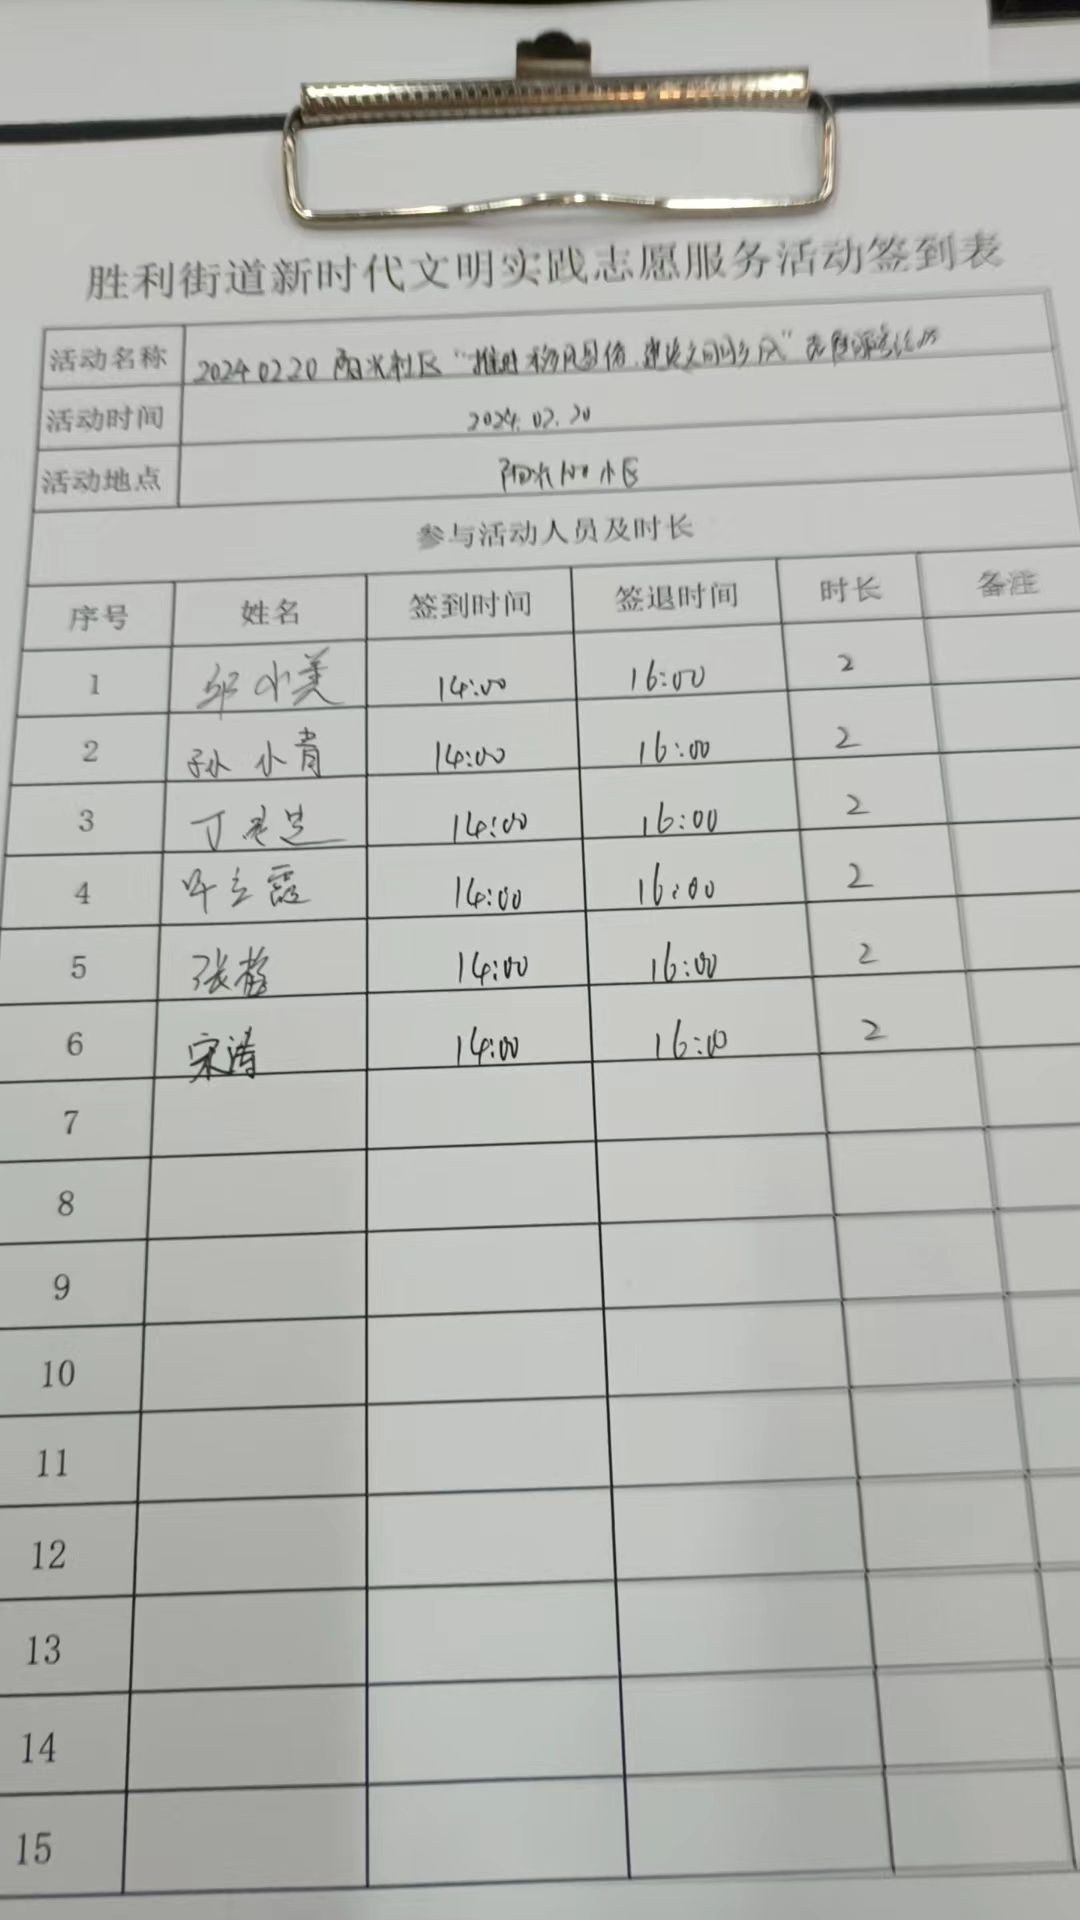 胜利街道新时代文明实践志愿服务活动签到表
活动名称 2024.02.20 阳光社区“推进移风易俗,建设文明乡风”志愿服务活动
活动时间 2024.02.20
活动地点 阳光100小区
参与活动人员及时长
序号 姓名 签到时间 签退时间 时长 备注
1 邹小美 14:00 16:00 2
2 孙小青 14:00 16:00 2
3 丁 14:00 16:00 2
4 霞 14:00 16:00 2
5 张梅 14:00 16:00 2
6 宋涛 14:00 16:00 2
7
8
9
10
11
12
13
14
15